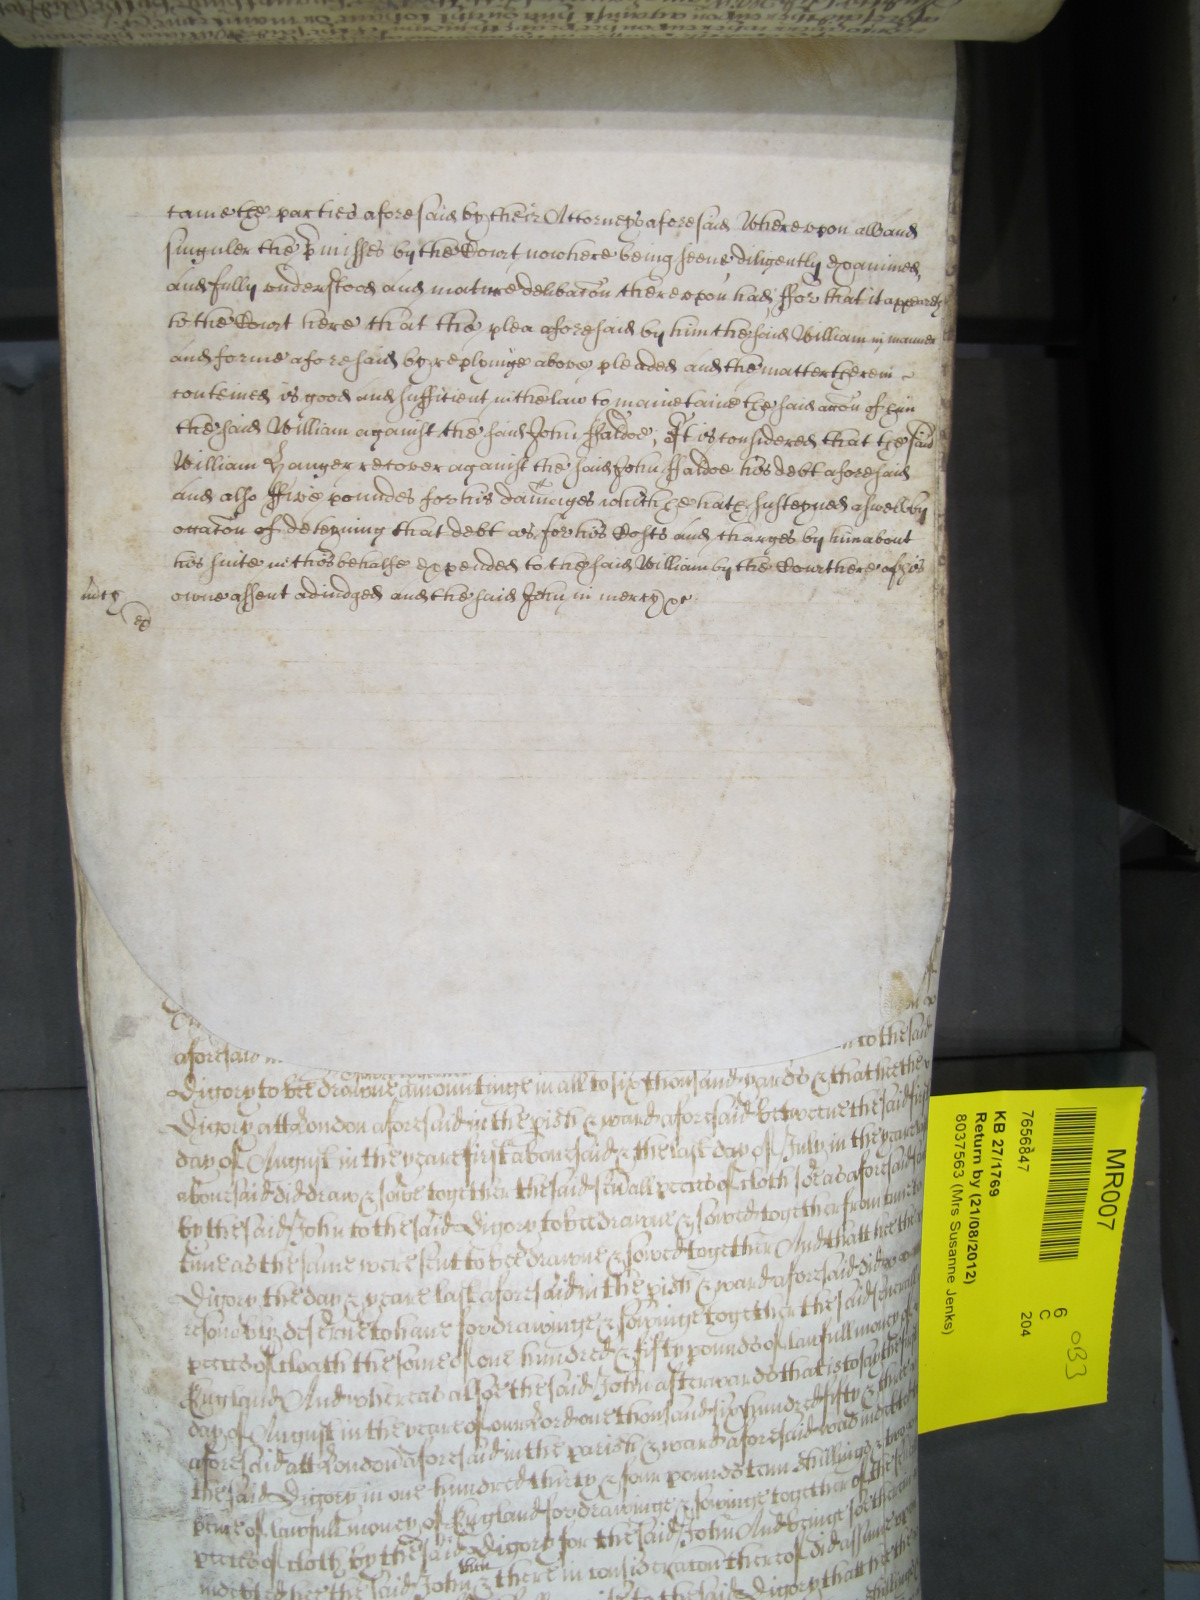 came the parties aforesaid by their Attorneys aforesaid Whereupon all and
singuler the p̱misses by the Court nowhere being seene diligently examined
and fully understood and mature delib̃acõn thereupon had, ffor that it appeareth
to the Court here that the plea aforesaid by him the said William in manner
and forme aforesaid by replyinge above pleaded and the matter therein
conteined is good and sufficient in the law to mainetaine the said accõn of him
the said William against the said John ffaldoe, It is considered that the said
William Hanger recover against the said John ffaldoe his debt aforesaid
and also ffive poundes for his damages which he hath susteyned aswell by
occacõn of deteyning that debt as for his Costs and charges by him about
his suite in this behalfe expended to the said William by the Court here of his
owne assent adiudged and the said John in mercy &c
aforesaid
to the said
Digory to bee drawne amountinge in all to six thousand yards & that hee the
Digory att London aforesaid in the p̱ish & ward aforesaid betweene the said first
day of August in the yeare first abovesaid & the last day of July in the yeare
abovesaid did draw & sowe together the said sev̱all peeces of cloth soe as aforesaid
by the said John to the said Digory to bee drawne & sowed together from time to
time as the same were sent to bee drawne & sowed together And that hee the
Digory the day & yeare last aforesaid in the p̱ish & ward aforesaid did
resonably deserve to have for drawinge & sowinge together the said severall
peeces of cloath the some of one hundred & fifty pounds of lawfull money of
England And whereas alsoe the said John afterwards that is to say the
day of August in the yeare of our Lord one thousand six hundred fifty & three
aforesaid att London aforesaid in the parish & ward aforesaid was indebted to
the said Digory in one hundred thirty & foure pounds tenn shillings & two
pence of lawfull money of England for drawinge & sowinge together of the
peeces of cloth by the said Digory for the said John And beinge soe thereof
indebted hee the said John then & there in consideracõn thereof did assume
to the said Digory that hee the
MR007
7656847
6
C
204
KB 27/1769
Return by (21/08/2012)
8037563 (Mrs Susanne Jenks)
033